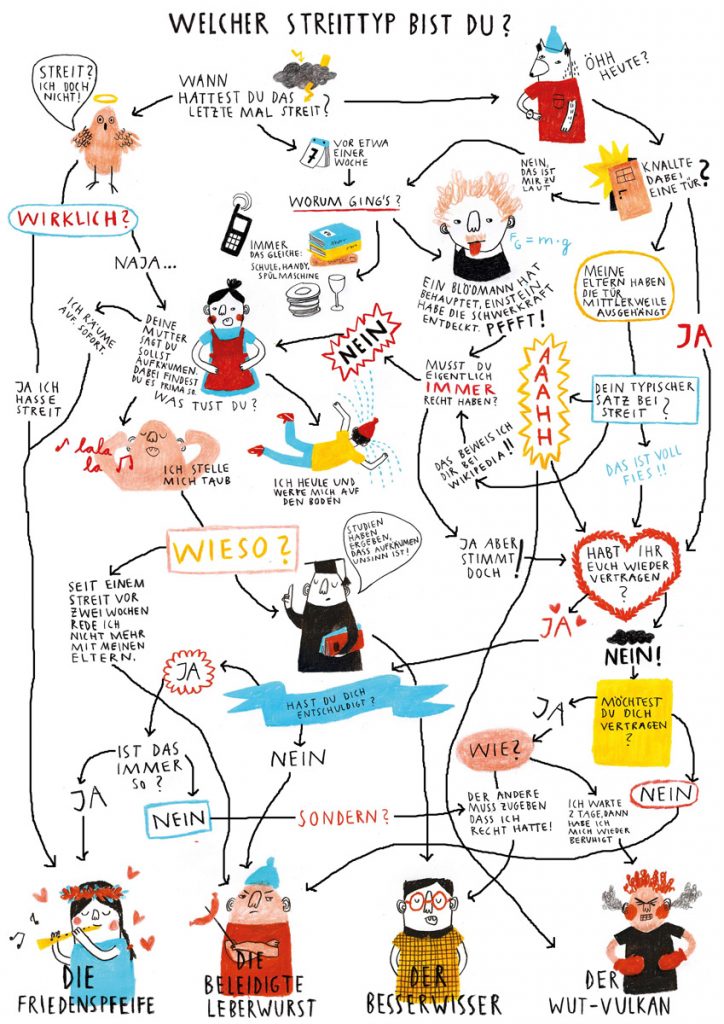 WELCHER STREITTYP BIST DU?
STREIT?
ICH DOCH
NICHT!
WANN
HATTEST DU DAS
LETZTE MAL STREIT?
ÖHH
HEUTE?
7
VOR ETWA
EINER
WOCHE
NEIN,
DAS IST
MIR ZU
LAUT
KNALLTE
DABEI
EINE TÜR?
WIRKLICH?
WORUM GING'S?
NAJA...
IMMER
DAS GLEICHE:
SCHULE, HANDY,
SPÜLMASCHINE
FG = m·g
EIN BLÖDMANN HAT
BEHAUPTET, EINSTEIN
HABE DIE SCHWERKRAFT
ENTDECKT. PFFFT!
MEINE
ELTERN HABEN
DIE TÜR
MITTLERWEILE
AUSGEHÄNGT
JA
ICH RÄUME
AUF. SOFORT.
DEINE
MUTTER
SAGT DU
SOLLST
AUFRÄUMEN.
DABEI FINDEST
DU ES PRIMA SO.
WAS TUST DU?
NEIN
MUSST DU
EIGENTLICH
IMMER
RECHT HABEN?
AAAHH
DEIN TYPISCHER
SATZ BEI
STREIT?
JA ICH
HASSE
STREIT
lala
la
ICH STELLE
MICH TAUB
ICH HEULE UND
WERFE MICH AUF
DEN BODEN
DAS BEWEIS ICH
DIR BEI
WIKIPEDIA!!
DAS IST VOLL
FIES!!
WIESO?
STUDIEN
HABEN
ERGEBEN,
DASS AUFRÄUMEN
UNSINN IST!
JA ABER
STIMMT
DOCH!
HABT IHR
EUCH WIEDER
VERTRAGEN
?
SEIT EINEM
STREIT VOR
ZWEI WOCHEN
REDE ICH
NICHT MEHR
MIT MEINEN
ELTERN.
JA
NEIN!
JA
HAST DU DICH
ENTSCHULDIGT?
JA
MÖCHTEST
DU DICH
VERTRAGEN
?
IST DAS
IMMER
SO?
NEIN
WIE?
JA
NEIN
SONDERN?
DER ANDERE
MUSS ZUGEBEN
DASS ICH
RECHT HATTE!
ICH WARTE
2 TAGE, DANN
HABE ICH
MICH WIEDER
BERUHIGT
NEIN
DIE
FRIEDENSPFEIFE
DIE
BELEIDIGTE
LEBERWURST
DER
BESSERWISSER
DER
WUT-VULKAN